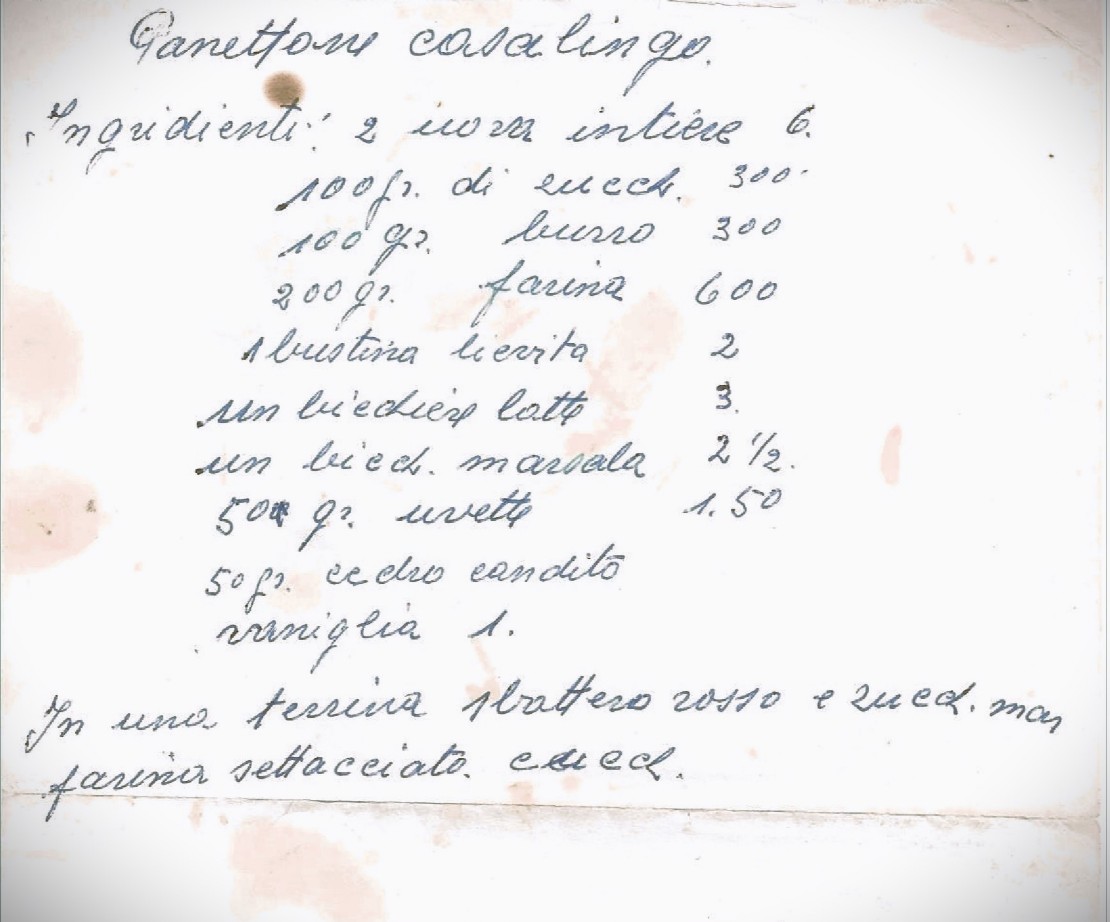 Panettone casalingo.
Ingridienti: 2 uova intiere 6.
100 gr. di zucch. 300.
100 gr. burro 300
200 gr. farina 600
1 bustina lievita 2
un bicchiere latte 3.
un bicch. marsala 2 1/2.
50 gr. uvette 1.50
50 gr. cedro candito
vaniglia 1.
In una terrina sbattero rosso e zucch. mar
farina settacciato.